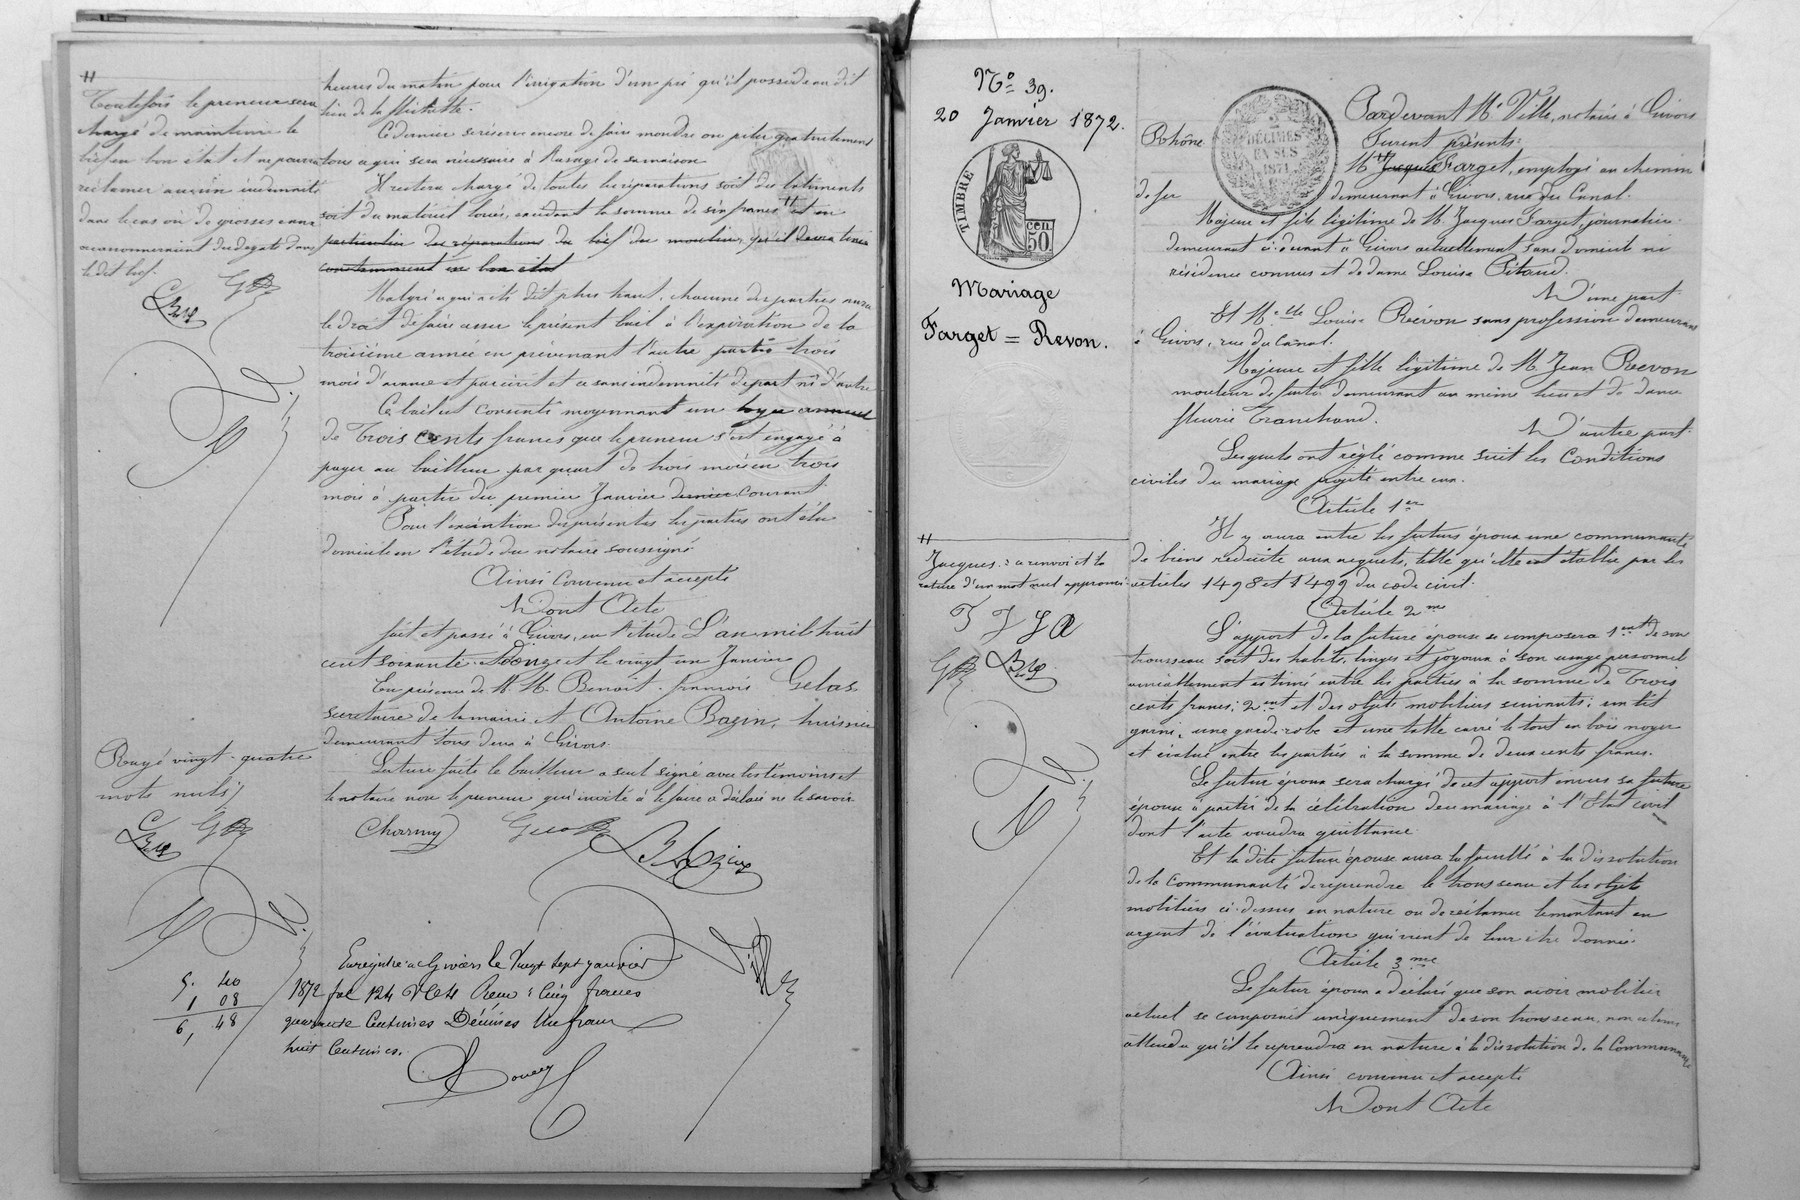 Toutefois le preneur sera
chargé de maintenir le
bief en bon état et ne pourra
réclamer aucun indemnité
dans le cas où de grosses eaux
occasionneraient des dégats dans
le dit bief.
heures du matin pour l'irrigation d'un pré qu'il possède au dit
lieu de la
Ce dernier se réserve encore de faire moudre ou piler gratuitement
tout ce qui sera nécessaire à l'usage de sa maison
Il restera chargé de toutes les réparations soit des bâtiments
soit du matériel loués, excédant la somme de six francs et en
particulier des réparations du bief du moulin qu'il devra tenir
constamment en bon état
Malgré ce qui a été dit plus haut, chacune des parties aura
le droit de faire cesser le présent bail à l'expiration de la
troisième année en prévenant l'autre partie trois
mois d'avance et par écrit et ce sans indemnité de part ni d'autre
Ce bail est consenti moyennant un loyer annuel
de Trois cents francs que le preneur s'est engagé à
payer au bailleur par quart de trois mois en trois
mois à partir du premier Janvier dernier courant
Pour l'exécution des présentes les parties ont élu
domicile en l'étude du notaire soussigné
Ainsi convenu et accepté
Dont Acte
fait et passé à Givors, en l'étude L'an mil huit
cent soixante-douze et le vingt un Janvier
En présence de M.M. Benoit-françois Gelas
secrétaire de la mairie et Antoine Bazin, huissier
demeurant tous deux à Givors.
Lecture faite le bailleur a seul signé avec les témoins et
le notaire non le preneur qui invité à le faire a déclaré ne le savoir
Rayé vingt-quatre
mots nuls
Charmy
Gelas
Bazin
Enregistré à Givors le Vingt sept janvier
1872 fol 124 Vo C 4 Reçu : Cinq francs
quarante Centimes Décimes Un franc
huit Centimes.
5. 40
1 08
6, 48
No 39.
20 Janvier 1872.
TIMBRE
CEN
50
Mariage
Farget = Revon.
Jacques : ce renvoi et la
rature d'un mot nul approuvés
Rhône
5
DÉCIMES
EN SUS
1871
Pardevant Me Ville, notaire à Givors
Furent présents:
M. Jacques Farget, employé au chemin
de fer demeurant à Givors, rue du Canal.
Majeur et fils légitime de M. Jacques Farget, journalier
demeurant ci-devant à Givors actuellement sans domicile ni
résidence connus et de dame Louise Pitaud.
D'une part
Et Melle Louise Révon sans profession demeurant
à Givors, rue du Canal.
Majeure et fille légitime de M. Jean Revon
mouleur de fonte demeurant au même lieu et de dame
fleurie Tranchand.
D'autre part.
Lesquels ont réglé comme suit les Conditions
civiles du mariage projeté entre eux.
Article 1er
Il y aura entre les futurs époux une communauté
de biens réduite aux acquets, telle qu'elle est établie par les
articles 1498 et 1499 du code civil.
Article 2me
L'apport de la future épouse se composera 1ent de son
trousseau soit des habits, linges et joyaux à son usage personnel
amiablement estimé entre les parties à la somme de Trois
cents francs; 2ent et des objets mobiliers suivants: un lit
garni, une garde robe et une table carré le tout en bois noyer
et évalué entre les parties à la somme de deux cents francs.
Le futur époux sera chargé de cet apport envers sa future
épouse à partir de la célébration de leur mariage à l'Etat civil
dont l'acte vaudra quittance.
Et la dite future épouse aura la faculté à la dissolution
de la Communauté de reprendre le trousseau et les objets
mobiliers ci-dessus en nature ou de réclamer le montant en
argent de l'évaluation qui vient de leur être donnée.
Article 3me
Le futur époux a déclaré que son avoir mobilier
actuel se composait uniquement de son trousseau, non estimé
attendu qu'il le reprendra en nature à la dissolution de la Communauté
Ainsi convenu et accepté
Dont Acte